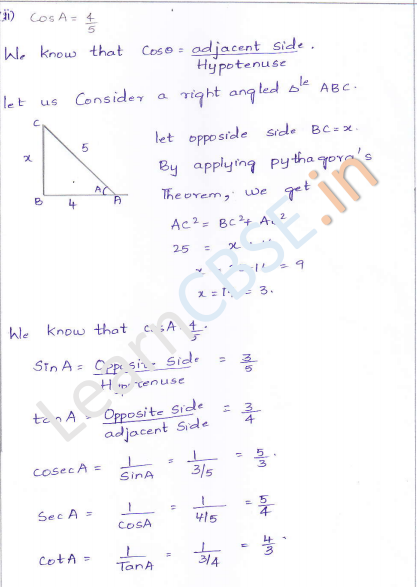 ii) CosA = 4/5
We know that Cosθ = adjacent side / Hypotenuse.
let us Consider a right angled Δle ABC.
C
x
5
B
4
A
let opposide side BC = x.
By applying pythagora's
Theorem, we get
AC² = BC² +
25 = x
= 9
x = = 3.
We know that cosA 4/5.
SinA = Opposite Side / Hypotenuse = 3/5
tanA = Opposite side / adjacent side = 3/4
cosecA = 1/SinA = 1/3/5 = 5/3.
SecA = 1/cosA = 1/4/5 = 5/4
CotA = 1/TanA = 1/3/4 = 4/3
LearnCBSE.in